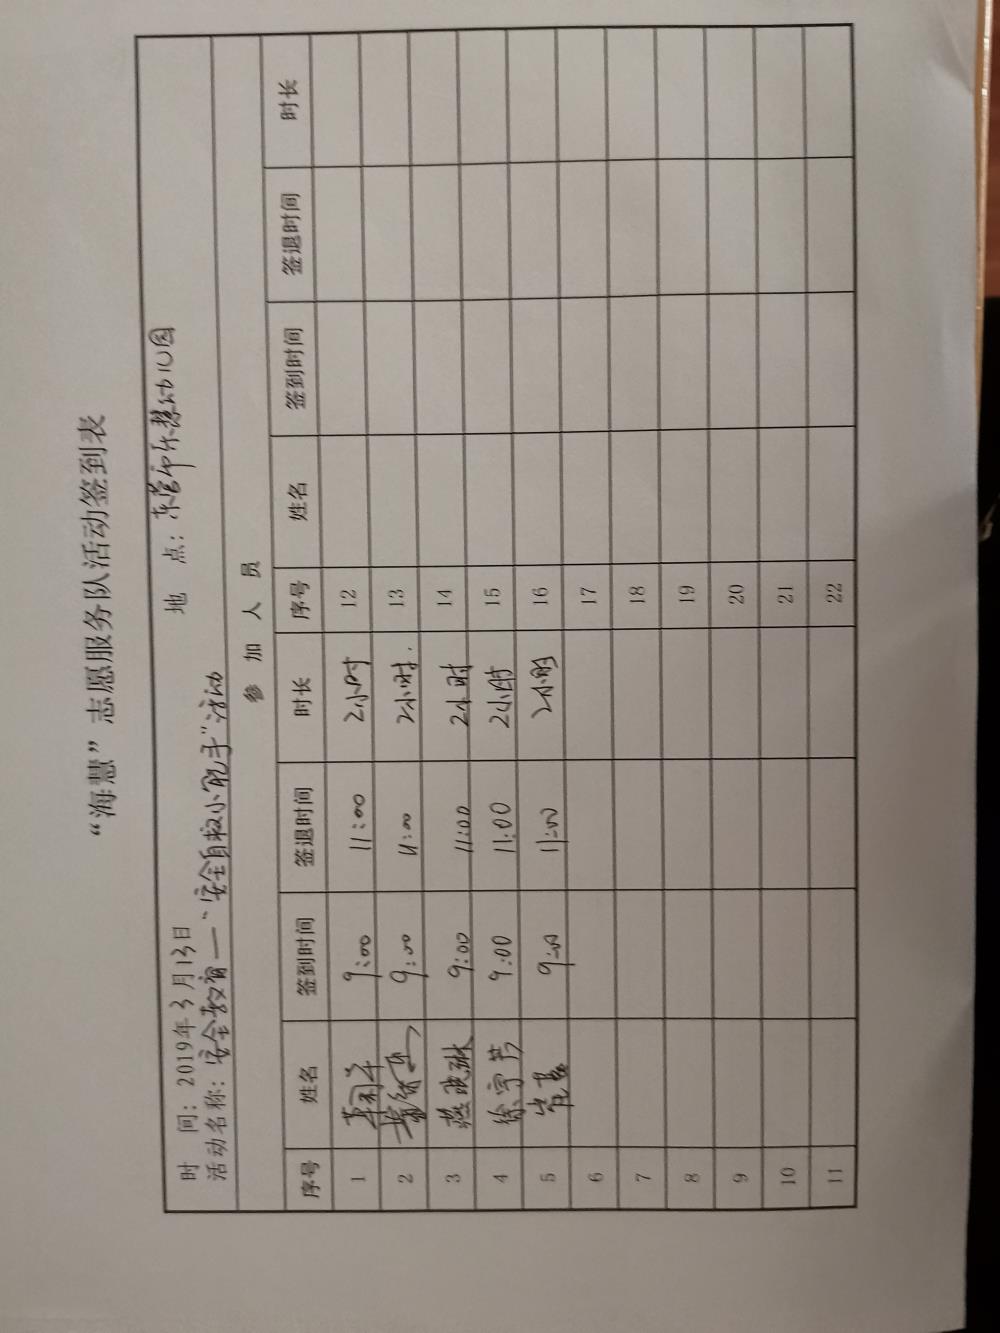 “海慧”志愿服务队活动签到表
时 间：2019年3月13日 地 点：东营市乐慧幼儿园
活动名称：安全教育—“安全自救小能手”活动
参 加 人 员
序号 姓名 签到时间 签退时间 时长 序号 姓名 签到时间 签退时间 时长
1 9:00 11:00 2小时 12
2 9:00 11:00 2小时. 13
3 9:00 11:00 2小时 14
4 徐宇芳 9:00 11:00 2小时 15
5 9:00 11:00 2小时 16
6 17
7 18
8 19
9 20
10 21
11 22